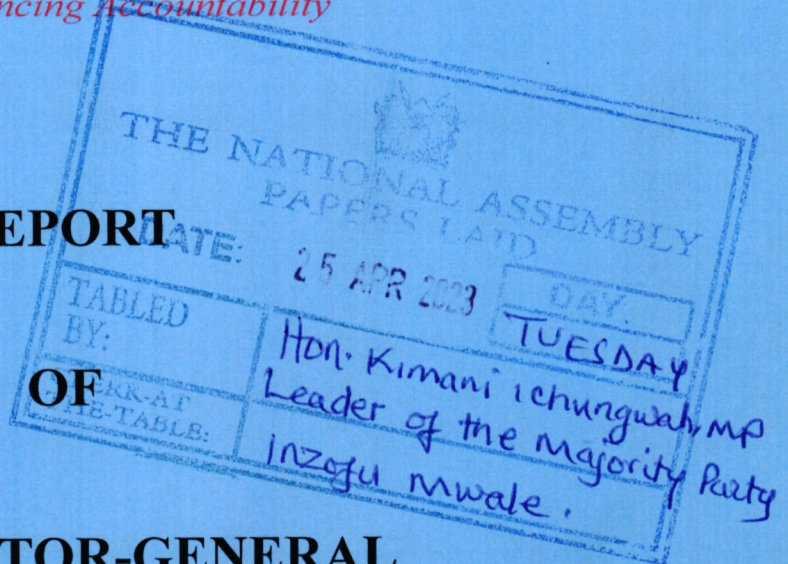 ncing Accountability
THE NATIONAL ASSEMBLY
PAPERS LAID
EPORT
DATE: 25 APR 2023
DAY.
TUESDAY
TABLED
BY:
Hon. Kimani ichungwah, MP
Leader of the Majority Party
OF
ERK-AT
HE-TABLE:
inzofu mwale.
TOR-GENERAL